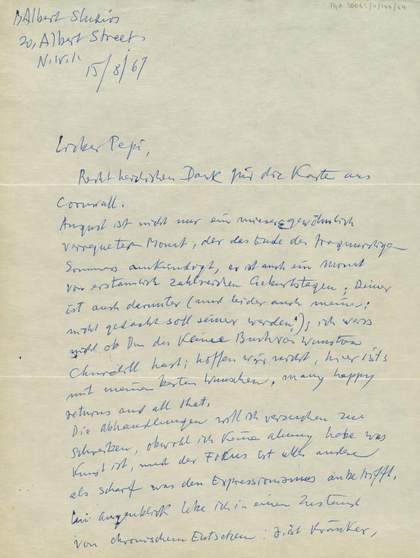 DAlbert Studios
20, Albert Street
N.W.1.
15/8/67
Lieber Pepi,
Recht herzlichen Dank für die Karte aus
Cornwall.
August ist nicht nur ein miserer gewöhnlich
verregneter Monat, der das Ende des fragwürdigen
Sommers ankündigt, er ist auch ein Monat
von erstaunlich zahlreichen Geburtstagen; Deiner
ist auch darunter (und leider auch meiner;
nicht gedacht soll seiner werden!); ich weiss
nicht ob Du das kleine Buch von Winston
Churchill hast; hoffen wir nicht, hier ist's
mit meinen besten Wünschen, many happy
returns and all that.
Die Abhandlungen will ich versuchen zu
schreiben, obwohl ich keine Ahnung habe was
Kunst ist, und der Fokus ist alles andere
als scharf was den Expressionismus anbetrifft.
Im Augenblick lebe ich in einem Zustand
von chronischem Entsetzen: ist Kränker,